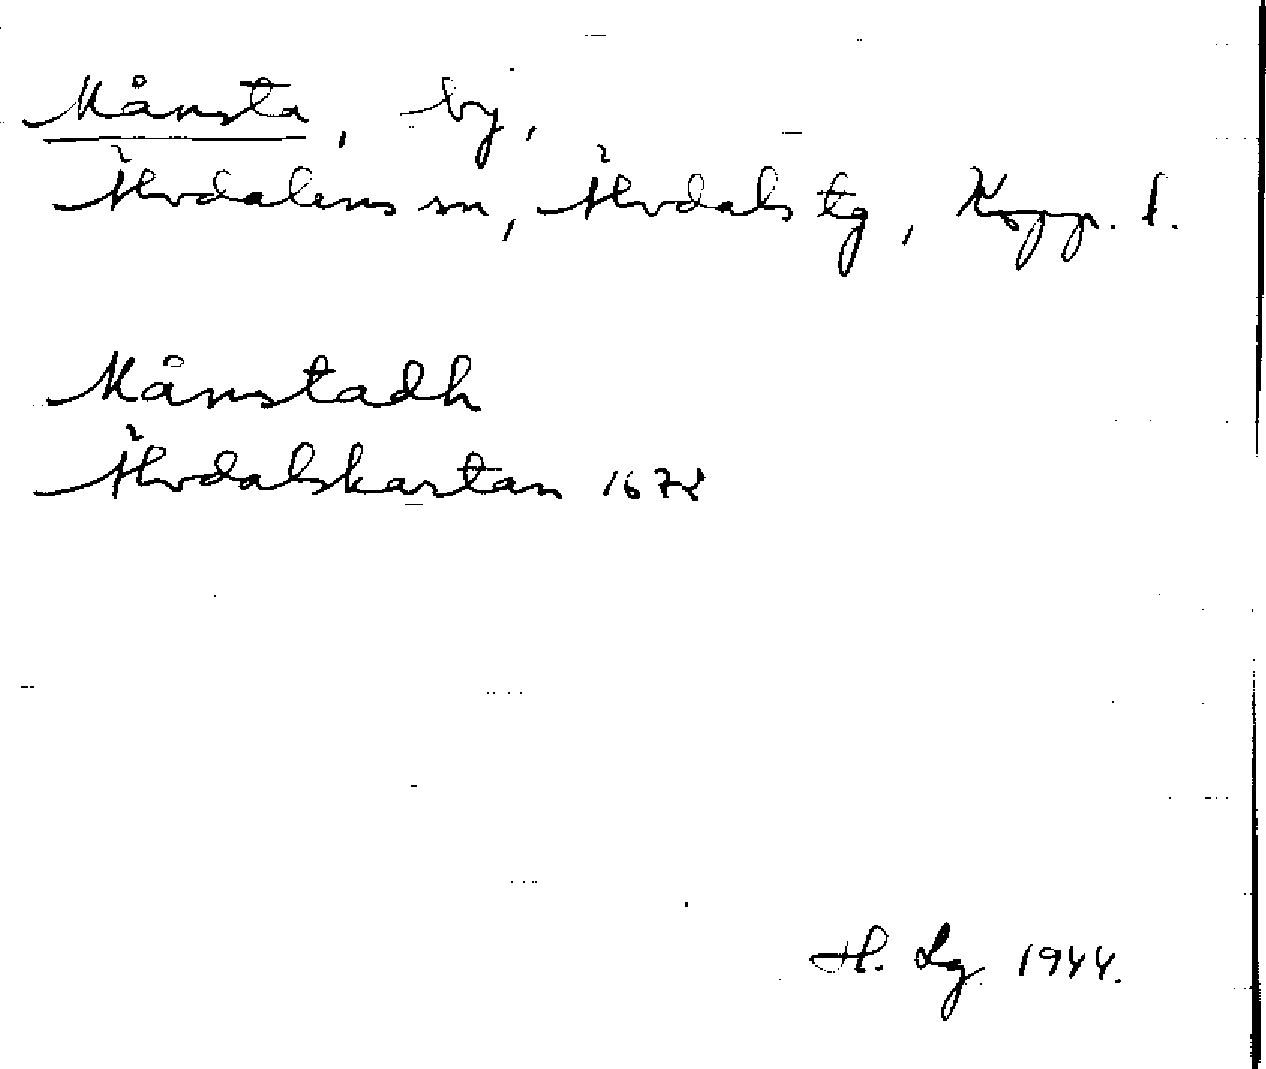 Månsta, by,
Älvdalens sn, Älvdals tg, Kopp. l.
Månstadh
Älvdalskartan 1672
H. Lg. 1944.